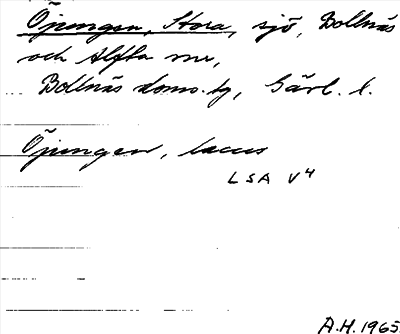 Öjungen, Stora, sjö, Bollnäs
och Alfta snr,
Bollnäs doms.by, Gävl. l.
Öjungen, lacus
LSA V4
A.H. 1965